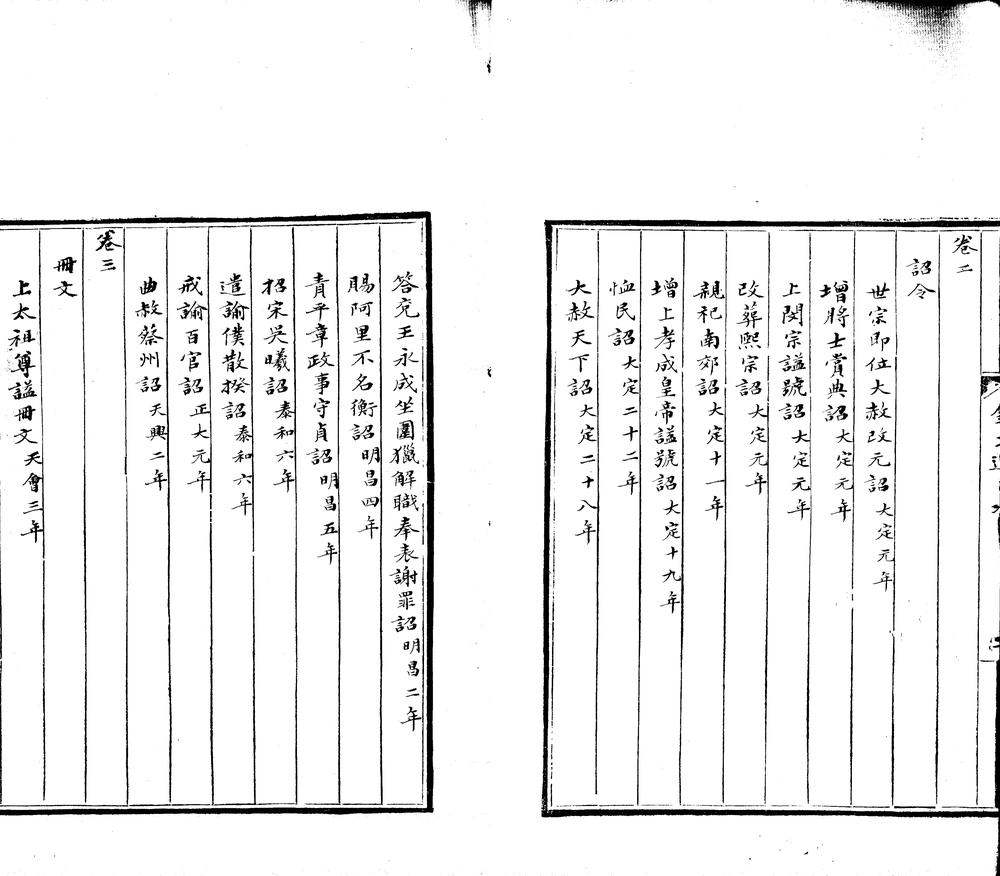 卷二
詔令
世宗即位大赦改元詔大定元年
增將士賞典詔大定元年
上閔宗謚號詔大定元年
改葬熙宗詔大定元年
親祀南郊詔大定十一年
增上孝成皇帝謚號詔大定十九年
恤民詔大定二十二年
大赦天下詔大定二十八年
答兗王永成坐圍獵解職奉表謝罪詔明昌二年
賜阿里不名衡詔明昌四年
責平章政事守貞詔明昌五年
招宋吳曦詔泰和六年
遣諭僕散揆詔泰和六年
戒諭百官詔正大元年
曲赦蔡州詔天興二年
卷三
冊文
上太祖尊謚冊文天會三年